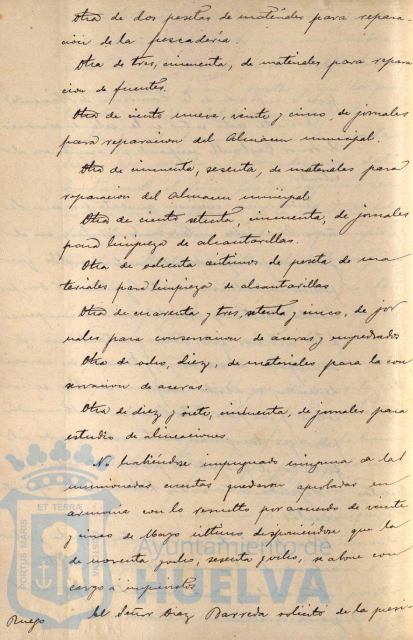 Otra de dos pesetas de materiales para repara-
cion de la pescadería.
Otra de tres, cincuenta, de materiales para repara
cion de fuentes.
Otra de ciento nueve, veinte y cinco, de jornales
para reparacion del Almacen municipal.
Otra de cincuenta, sesenta, de materiales para
reparacion del Almacen municipal
Otra de ciento setenta, cincuenta, de jornales
para limpieza de alcantarillas.
Otra de ochenta céntimos de peseta de ma
teriales para limpieza de alcantarillas
Otra de cuarenta y tres, setenta y cinco, de jor
nales para conservacion de aceras y empedrados
Otra de ocho, diez, de materiales para la con
servacion de aceras.
Otra de diez y siete, cincuenta, de jornales para
estudio de alineaciones
No habiéndose impugnado ninguna de las
mencionadas cuentas quedaron aprobadas en
armonia con lo resuelto por acuerdo de veinte
y cinco de Mayo último disponiéndose que la
de noventa y ocho, sesenta y ocho, se abone con
cargo a imprevistos
Ruego El Señor Diaz Barreda solicitó de la presi-
PORTUS MARIS
ET TERRAE
CUSTODIA
Ayuntamiento de
HUELVA